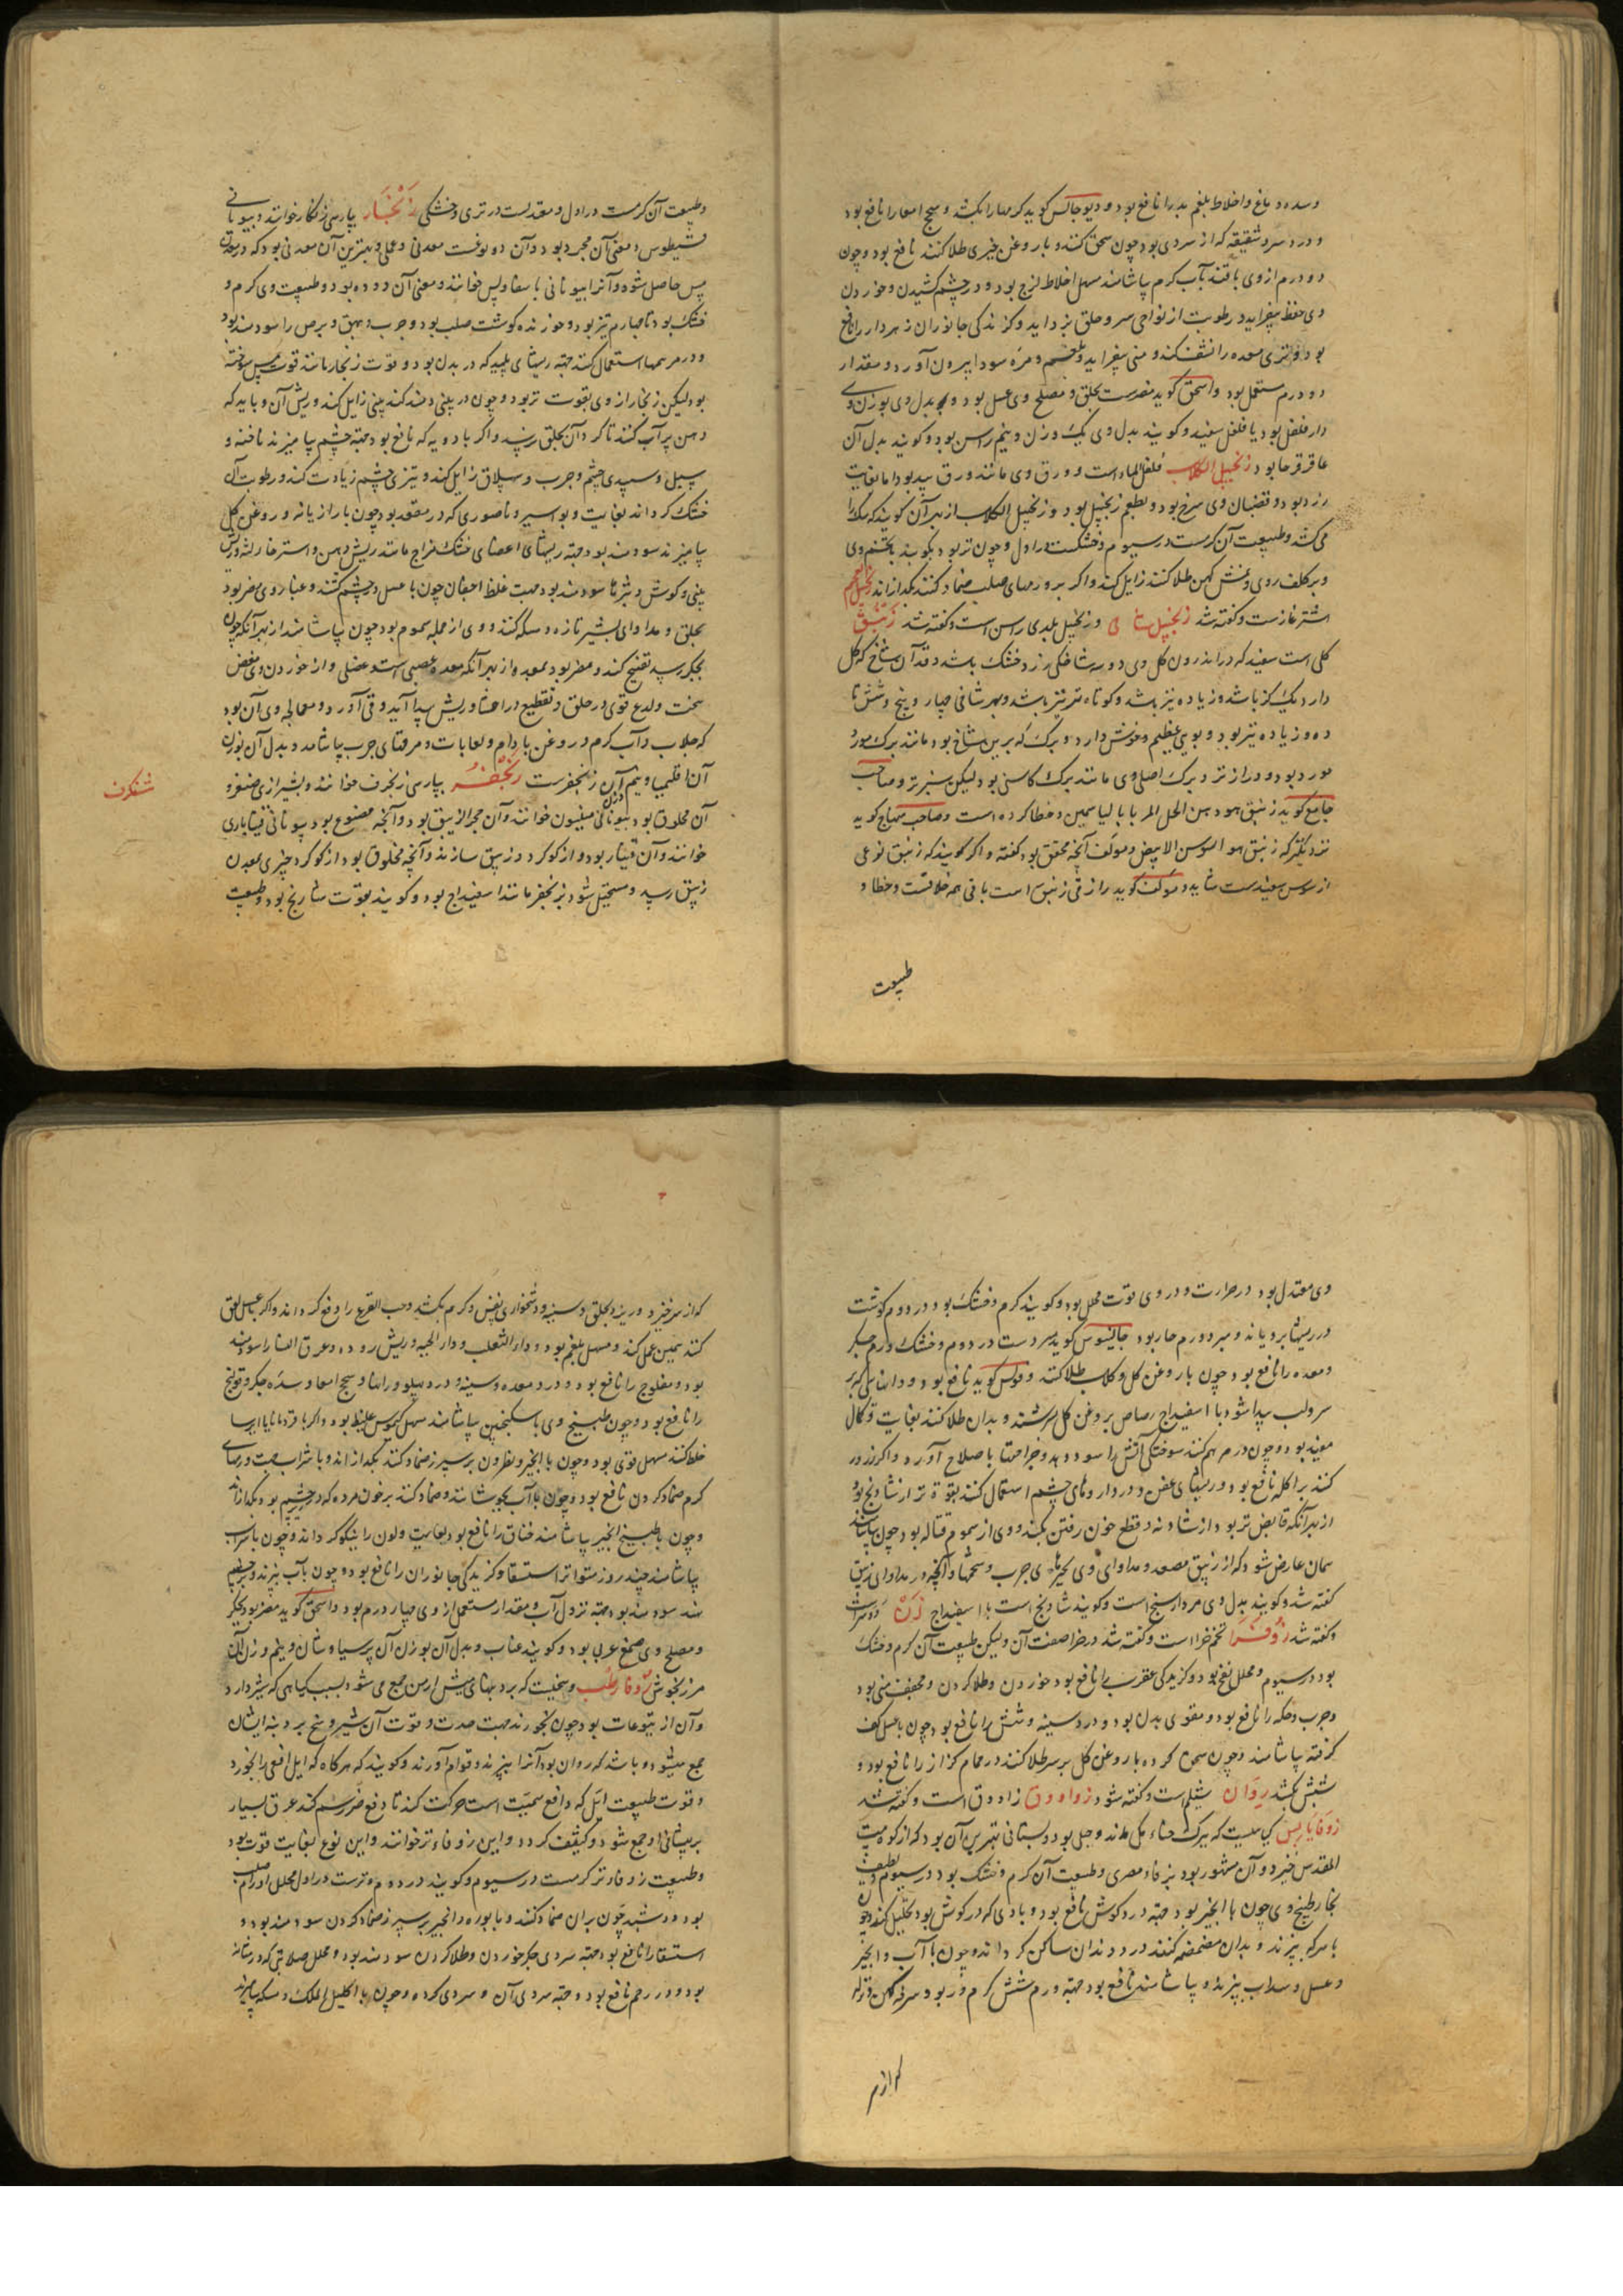 وسده دماغ و اخلاط بلغم بد را نافع بود و دیوجانس کوید کرمها را بکشد و سحج امعا را نافع بود
و درد سر و شقیقه که از سردی بود چون سحق کنند و با روغن خیری طلا کنند نافع بود و چون
دو درم از وی با قند بآب کرم بیاشامند مسهل اخلاط لزج بود و در چشم کشیدن و خوردن
وی حفظ بیفزاید و رطوبت از نواحی سر و حلق بزداید و کزندکی جانوران زهردار را نافع
بود و تری معده را نشف کند و منی بیفزاید و بلغم و مره سودا بیرون آورد و مقدار
دو درم مستعمل بود و اسحق کوید مضرست بحلق و مصلح وی عسل بود و بدل وی بوزن وی
دار فلفل بود یا فلفل سفید و کویند بدل وی یک وزن و نیم راسن بود و کویند بدل آن
عاقرقرحا بود زنجبیل الکلاب فلفل الماء است و ورق وی مانند ورق بید بود اما بغایت
زرد بود و قضبان وی سرخ بود و بطعم زنجبیل بود و زنجبیل الکلاب از بهر آن کویند که سک را
می کشد و طبیعت آن کرمست در سیوم و خشکست در اول و چون تر بود بکوبند با تخم وی
و بر کلف روی و نمش کهن طلا کنند زایل کند و اکر بر ورمهای صلب ضماد کنند بکدازاند زنجبیل العجم
اشترغازست و کفته شد زنجبیل شامی و زنجبیل بلدی راسن است و کفته شد زنبق
کلی است سفید که در اندرون کل وی دو سه شاخکی زرد خشک باشد و قد آن شاخ که کل
دارد یک کز باشد و زیاده نیز باشد و کوتاه تر نیز باشد و بهر شاخی چهار و پنج و شش تا
ده و زیاده نیز بود و بویی عظیم خوش دارد و برک که برین شاخ بود مانند برک مورد
مورد بود و درازتر و برک اصلی وی مانند برک کاسنی بود لیکن سبزتر و صاحب
جامع کوید زنبق هو دهن الحل المربا بالیاسمین و خطا کرده است و صاحب منهاج کوید
نزدیکتر که زنبق هو السوسن الابیض و مولف آنچه محقق بود کفته و اکر کویند که زنبق نوعی
از سوسن سفیدست شاید و مولف کوید رازقی زنبق است باقی همه خلافست و خطا و
طبیعت
وطبیعت آن کرمست در اول و معتدلست در تری و خشکی زنجار بپارسی زنکار خوانند و بیونانی
قسیطوس و معنی آن مجرد بود و آن دو نوعست معدنی و عملی و بهترین آن معدنی بود که در معدن
مس حاصل شود و آنرا بیونانی
خشک بود تا چهارم تیز بود و خورنده کوشت صلب بود و جرب و بهق و برص را سودمند بود
و در مرهمها استعمال کنند جهت ریشهای پلید که در بدن بود و قوت زنجار مانند قوت مس سوخته
بود لیکن زنجار از وی بقوت تر بود و چون در بینی دمند کند بینی زایل کند و ریش آن و باید که
دهن پر آب کنند تا کرد آن بحلق نرسد و اکر با دویه که نافع بود جهت چشم بیامیزند ناخنه و
سبل و سپیدی چشم و جرب و سلاق زایل کند و تیزی چشم زیادت کند و رطوبت آن
خشک کرداند بغایت و بواسیر و ناصوری که در مقعد بود چون با رازیانه و روغن کل
بیامیزند سودمند بود جهت ریشهای اعضای خشک مزاج مانند ریش دهن و استرخا و لثه و ریش
بینی و کوش و بثرها سودمند بود جهت غلظ اجفان چون با عسل در چشم کشند و غبار وی مضر بود
بحلق و مداوای بشیر تازه و مسکه کنند و وی از جمله سموم بود چون بیاشامند از بهر آنکه چون
بجکر رسد تقبیح کند و مضر بود بمعده از بهر آنکه معده عصبی است و عضلی و از خوردن وی مغص
سخت و لدغ قوی در حلق و تقطیع در احشا و ریش پیدا آید و قی آورد و معالجه وی آن بود
که جلاب و آب کرم و روغن بادام و لعابات و مرقهای چرب بیاشامد و بدل آن بوزن
آن اقلیمیا و نیم آن زنجفرست زنجفر بپارسی زنجرف خوانند و بشیرازی صنفرو
آن مخلوق بود بیونانی مینیون خوانند و آن حجر الزیبق بود و آنچه مصنوع بود بیونانی قیناباری
خوانند و آن قینار بود و از کوکرد و زیبق سازند و آنچه مخلوق بود از کوکرد چیزی بمعدن
زیبق رسد و مستحیل شود بزنجفر مانند اسفیداج بود و کویند بقوت شادنج بود و طبیعت
شنکرف
وی معتدل بود در حرارت و در وی قوت محلل بود و کویند کرم و خشک بود در دوم کوشت
در ریشها برویاند و مبرد ورم حار بود جالینوس کوید سردست در دوم و خشک ورم جکر
و معده را نافع بود چون با روغن کل و کلاب طلا کنند و فولس کوید نافع بود
سر و لب پیدا شود با اسفیداج رصاص بروغن کل سرشند و بدان طلا کنند بغایت
مفید بود و چون در مرهم کنند سوختکی آتش را سود دهد و جراحتها باصلاح آورد
کنند بر اکله نافع بود و ریشهای عفن و در داروهای چشم استعمال کنند بقوة تر از شادنج بود
از بهر آنکه قابض تر بود از شادنه و قطع خون رفتن بکند و وی از سموم قتاله بود چون بیاشامند
همان عارض شود که از زیبق مصعد و مداوای وی بچیزهای چرب و آنچه در مداوای زیبق
کفته شد و کویند بدل وی مردارسنج است و کویند شادنج است با اسفیداج زن
و کفته شد زوفرا تخم خزا است و کفته شد در خزا صفت آن ولیکن طبیعت آن کرم و خشک
بود در سیوم و محلل نفخ بود و کزیدکی عقرب را نافع بود خوردن و طلا کردن و مجفف منی بود
و جرب و حکه را نافع بود و مقوی بدن بود و درد سینه و شش را نافع بود چون با عسل کف
کرفته بیاشامند و چون سحق کرده با روغن کل بر سر طلا کنند در حمام کزاز را نافع بود و
شپش بکشد زوان شیلم است و کفته شود زواووق زاووق است و کفته شد
زوفا یابس کیاهیست که ببرک حنا ماند و جبلی بود و بستانی بهترین آن بود که از کوه بیت
المقدس خیزد و آن مشهور بود بزوفاء مصری و طبیعت آن کرم و خشک بود در سیوم و لطیف
بخار طبیخ وی چون با انجیر بود جهت درد کوش نافع بود و بادی که در کوش بود تحلیل کند و چون
با سرکه بپزند و بدان مضمضه کنند درد دندان ساکن کرداند و چون با آب و انجیر
و عسل و سداب بپزند و بیاشامند نافع بود جهت ورم شش کرم و ربو و سرفه کهن و نزله
که از سر خیزد و بریزد بحلق و سینه و دشخواری نفس و کرم بکشد و حب القرع را دفع کرداند و اکر با عسل لعق
کنند همین عمل کند و مسهل بلغم بود و داء الثعلب و داء الحیه و ریش روده و عرق النسا را سودمند
بود و مفلوج را نافع بود و درد معده و سینه و درد پهلو و رانها و سحج امعا و سده جکر و قولنج
را نافع بود و چون طبیخ وی با سکنجبین بیاشامند مسهل کیموس غلیظ بود و اکر با قردمانا یا ایرسا
خلط کنند مسهل قوی بود و چون با انجیر و نطرون بر سپرز ضماد کنند بکدازاند و با شراب جهت ورمهای
کرم ضماد کردن نافع بود و چون با آب بجوشانند و ضماد کنند بر خون مرده که در چشم بود بکدازاند
و چون با طبیخ انجیر بیاشامند خناق را نافع بود بغایت و لون را نیکو کرداند و چون با شراب
بیاشامند چند روز متواتر استسقا و کزیدکی جانوران را نافع بود و چون بآب بپزند و بچشم
نهند سودمند بود جهت نزول آب و مقدار مستعمل از وی چهار درم بود و اسحق کوید مضر بود بجکر
و مصلح وی صمغ عربی بود و کویند عناب و بدل آن بوزن آن پرسیاوشان و نیم وزن آن
مرزنجوش زوفا رطب وسخیست که بر دنبهای میش ارمن جمع می شود بسبب کیاهی که شیر دارد
و آن از یتوعات بود چون بخورند جهت حدت و قوت آن شیر وسخ بر دنبه ایشان
جمع میشود و باشد که روان بود آنرا بپزند و قوام آورند و کویند که هرکاه که ایل افعی را بخورد
و قوت طبیعت ایل که دافع سمیت است حرکت کند تا دفع ضرر سم کند عرق بسیار
بر پیشانی او جمع شود و کثیف کردد و این زوفاء تر خوانند و این نوع بغایت قوت بود
و طبیعت زوفاء تر کرمست در سیوم و کویند در دوم و ترست در اول محلل اورام صلب
بود و دشبد چون بران ضماد کنند و با بوره و انجیر بر سپرز ضماد کردن سودمند بود و
استسقا را نافع بود جهت سردی جکر خوردن و طلا کردن سودمند بود و محلل صلابتی که در مثانه
بود و در رحم نافع بود و جهت سردی آن و سردی کرده و چون با اکلیل الملک و مسکه بیامیزند